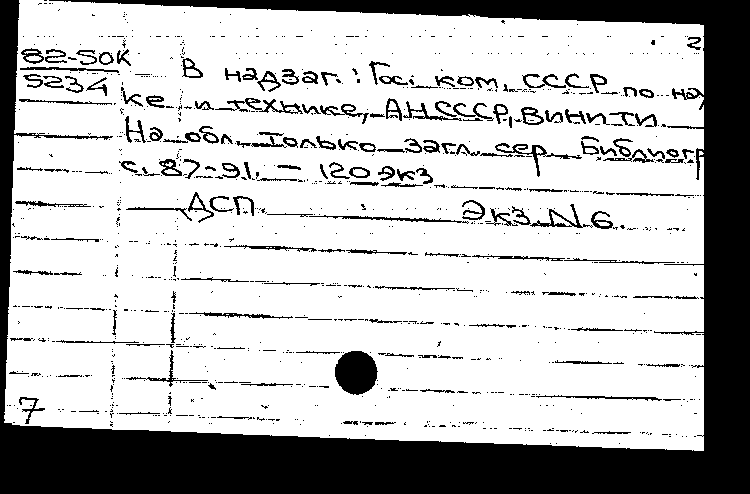 2
82-50К
5234
В надзаг.: Гос. ком. СССР по нау
ке и технике, АН СССР, ВИНИТИ.
На обл. только загл. сер. Библиогр
с. 87-91. – 120 экз
ДСП. Экз. N 6.
7